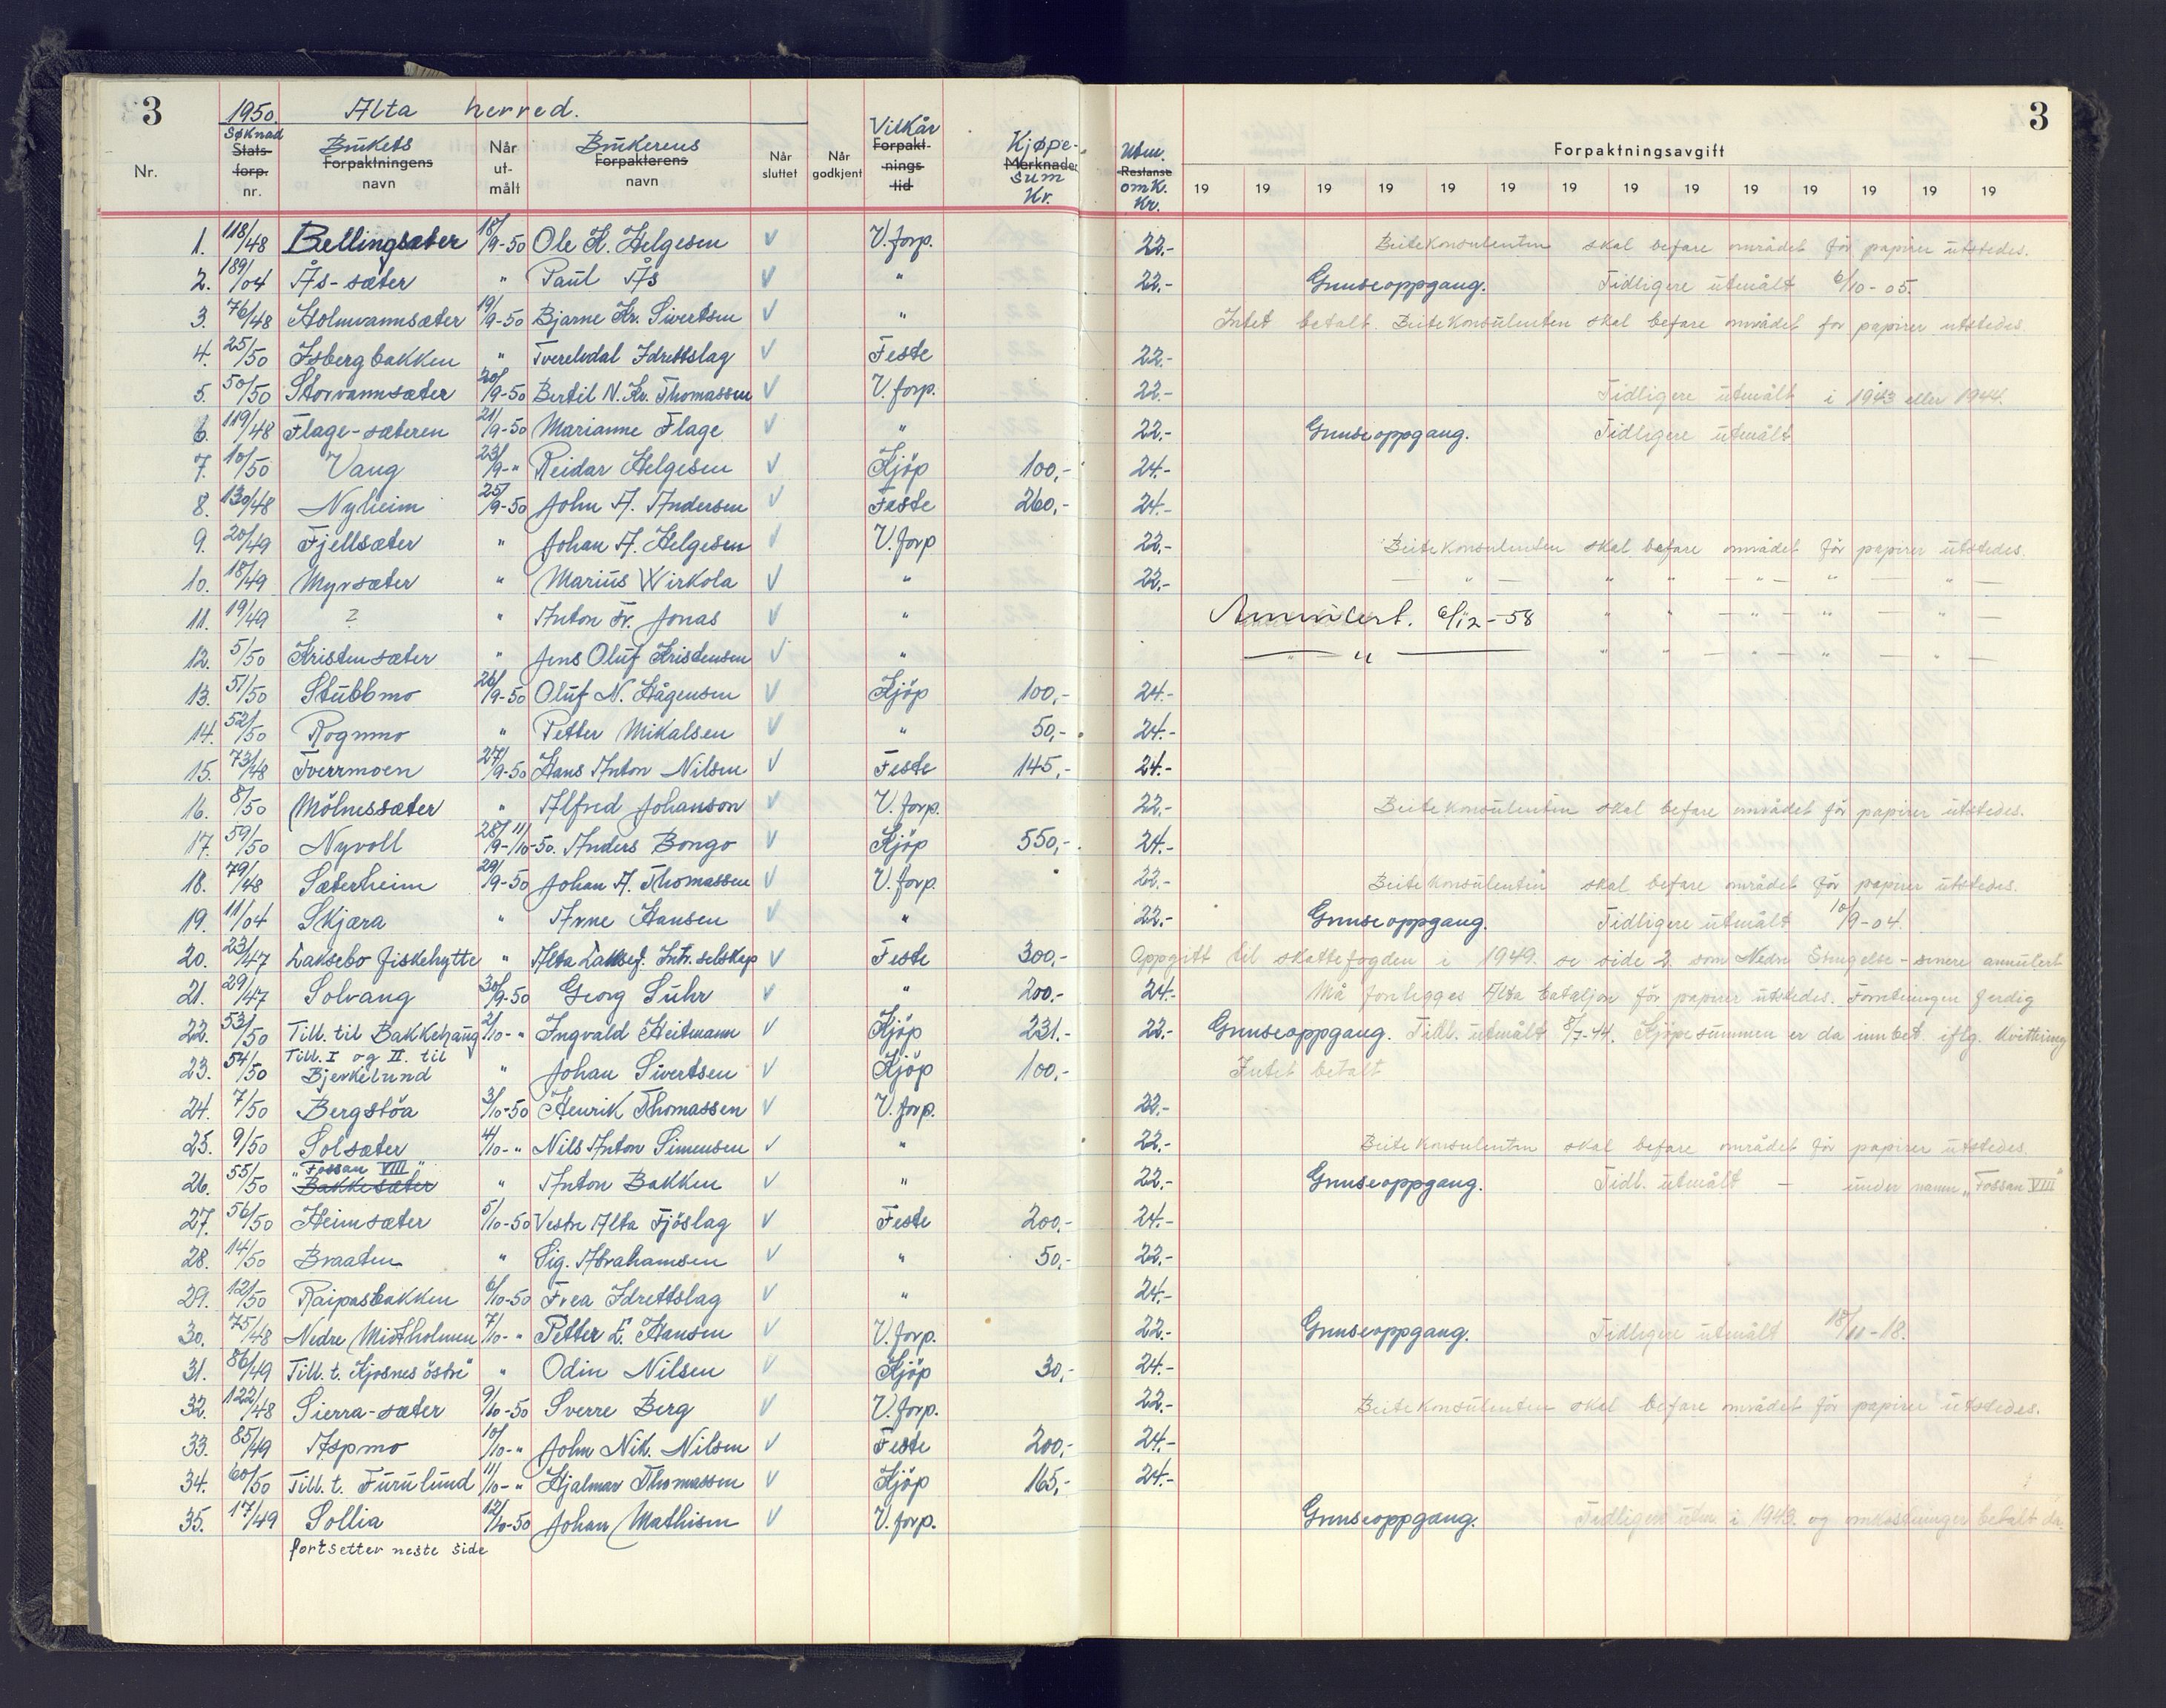 3
1950. Alta herred.
3
Nr. Søknad Stats-forp. nr. Brukets Forpaktningens navn Når utmålt Brukerens Forpakterens navn Når sluttet Når godkjent Vilkår Forpaktnings tid Kjøpe- Merknader sum Kr. Utm. Restanse omk. Kr. Forpaktningsavgift
19 19 19 19 19 19 19 19 19 19 19 19 19 19
1. 118/48 Bellingsæter 18/9-50 Ole K. Helgesen V V.forp. 22.- Beitekonsulenten skal befare området för papirer utstedes.
2. 189/04 Ås-sæter " Paul Ås V " 22.- Grenseoppgang. Tidligere utmålt 6/10-05.
3. 76/48 Holmvannsæter 19/9-50 Bjarne Kr. Sivertsen V " Intet betalt. Beitekonsulenten skal befare området for papirer utstedes.
4. 25/50 Isbergbakken " Tverelvdal Idrettslag V Feste 22.-
5. 50/50 Storvannsæter 20/9-50 Bertil N. Kr. Thomassen V V.forp. 22.- Tidligere utmålt i 1943 eller 1944.
6. 119/48 Flage-sæteren 21/9-50 Marianne Flage V " 22.- Grenseoppgang. Tidligere utmålt
7. 10/50 Vang 23/9-" Reidar Helgesen V Kjöp 100,- 24.-
8. 130/48 Nyheim 25/9-50 John A. Andersen V Feste 260,- 24.-
9. 20/49 Fjellsæter " Johan A. Helgesen V V.forp 22.- Beitekonsulenten skal befare området för papirer utstedes.
10. 18/49 Myrsæter " Marius Wirkola V " 22.- — " — " " — " — " — " —
11. 19/49 ? " Anton Fr. Jonas V " Annulert. 6/12-58 " " — " — " — " —
12. 5/50 Kristensæter " Jens Oluf Kristensen V " — " — " " — " — " — " —
13. 51/50 Stubbmo 26/9-50 Oluf N. Hågensen V Kjöp 100,- 24.-
14. 52/50 Rognmo " Petter Mikalsen V " 50,- 24.-
15. 73/48 Tverrmoen 27/9-50 Hans Anton Nilsen V Feste 145,- 24.-
16. 8/50 Mölnessæter " Alfred Johanson V V.forp. 22.- Beitekonsulenten skal befare området för papirer utstedes.
17. 59/50 Nyvoll 28/9-11/10-50. Anders Bongo V Kjöp 550,- 24.-
18. 79/48 Sæterheim 29/9-50 Johan A. Thomassen V V.forp. 22.- Beitekonsulenten skal befare området för papirer utstedes.
19. 11/04 Skjæra " Arne Hansen V " 22.- Grenseoppgang. Tidligere utmålt 10/9-04.
20. 23/47 Laksebo fiskehytte " Alta Laksef. Intr. selskap V Feste 300,- Oppgitt til skattefogden i 1949. se side 2. som Nedre Stengelse - senere annulert
21. 29/47 Solvang 30/9-50 Georg Suhr V " 200.- 24.- Må forelegges Alta bataljon för papirer utstedes. Forretningen ferdig
22. 53/50 Till. til Bakkehaug 2/10-" Ingvald Heitmann V Kjöp 231.- 22.- Grenseoppgang. Tidl. utmålt 8/7-44. Kjöpesummen er da innbet. iflg. kvittering
23. 54/50 Till. I og II. til Bjerkelund " Johan Sivertsen V Kjöp 100,- Intet betalt
24. 7/50 Bergstöa 3/10-50 Henrik Thomassen V V.forp. 22.-
25. 9/50 Solsæter 4/10-" Nils Anton Simensen V " 22.- Beitekonsulenten skal befare området för papirer utstedes.
26. 55/50 "Fossan VIII" Bakkesæter " Anton Bakken V " 22.- Grenseoppgang. Tidl. utmålt — under navn "Fossan VIII"
27. 56/50 Heimsæter 5/10-50 Vestre Alta Fjöslag V Feste 200,- 24.-
28. 14/50 Braaten " Sig. Abrahamsen V " 50,- 22.-
29. 12/50 Raipasbakken 6/10-50 Frea Idrettslag V " 24.-
30. 75/48 Nedre Midtholmen 7/10-" Petter E. Hansen V V.forp. 22.- Grenseoppgang. Tidligere utmålt 18/11-18.
31. 86/49 Till. t. Kjosnes östre " Odin Nilsen V Kjöp 30,- 24.-
32. 122/48 Sierra-sæter 9/10-50 Sverre Berg V V.forp. 22.- Beitekonsulenten skal befare området för papirer utstedes.
33. 85/49 Aspmo 10/10-" John Nik. Nilsen V Feste 200,- 24.-
34. 60/50 Till. t. Furulund 11/10-" Hjalmar Thomassen V Kjöp 165,- 24.-
35. 17/49 Sollia 12/10-50 Johan Mathisen V V.forp. Grenseoppgang. Tidligere utm. i 1949. og omkostninger betalt da.
fortsetter neste side